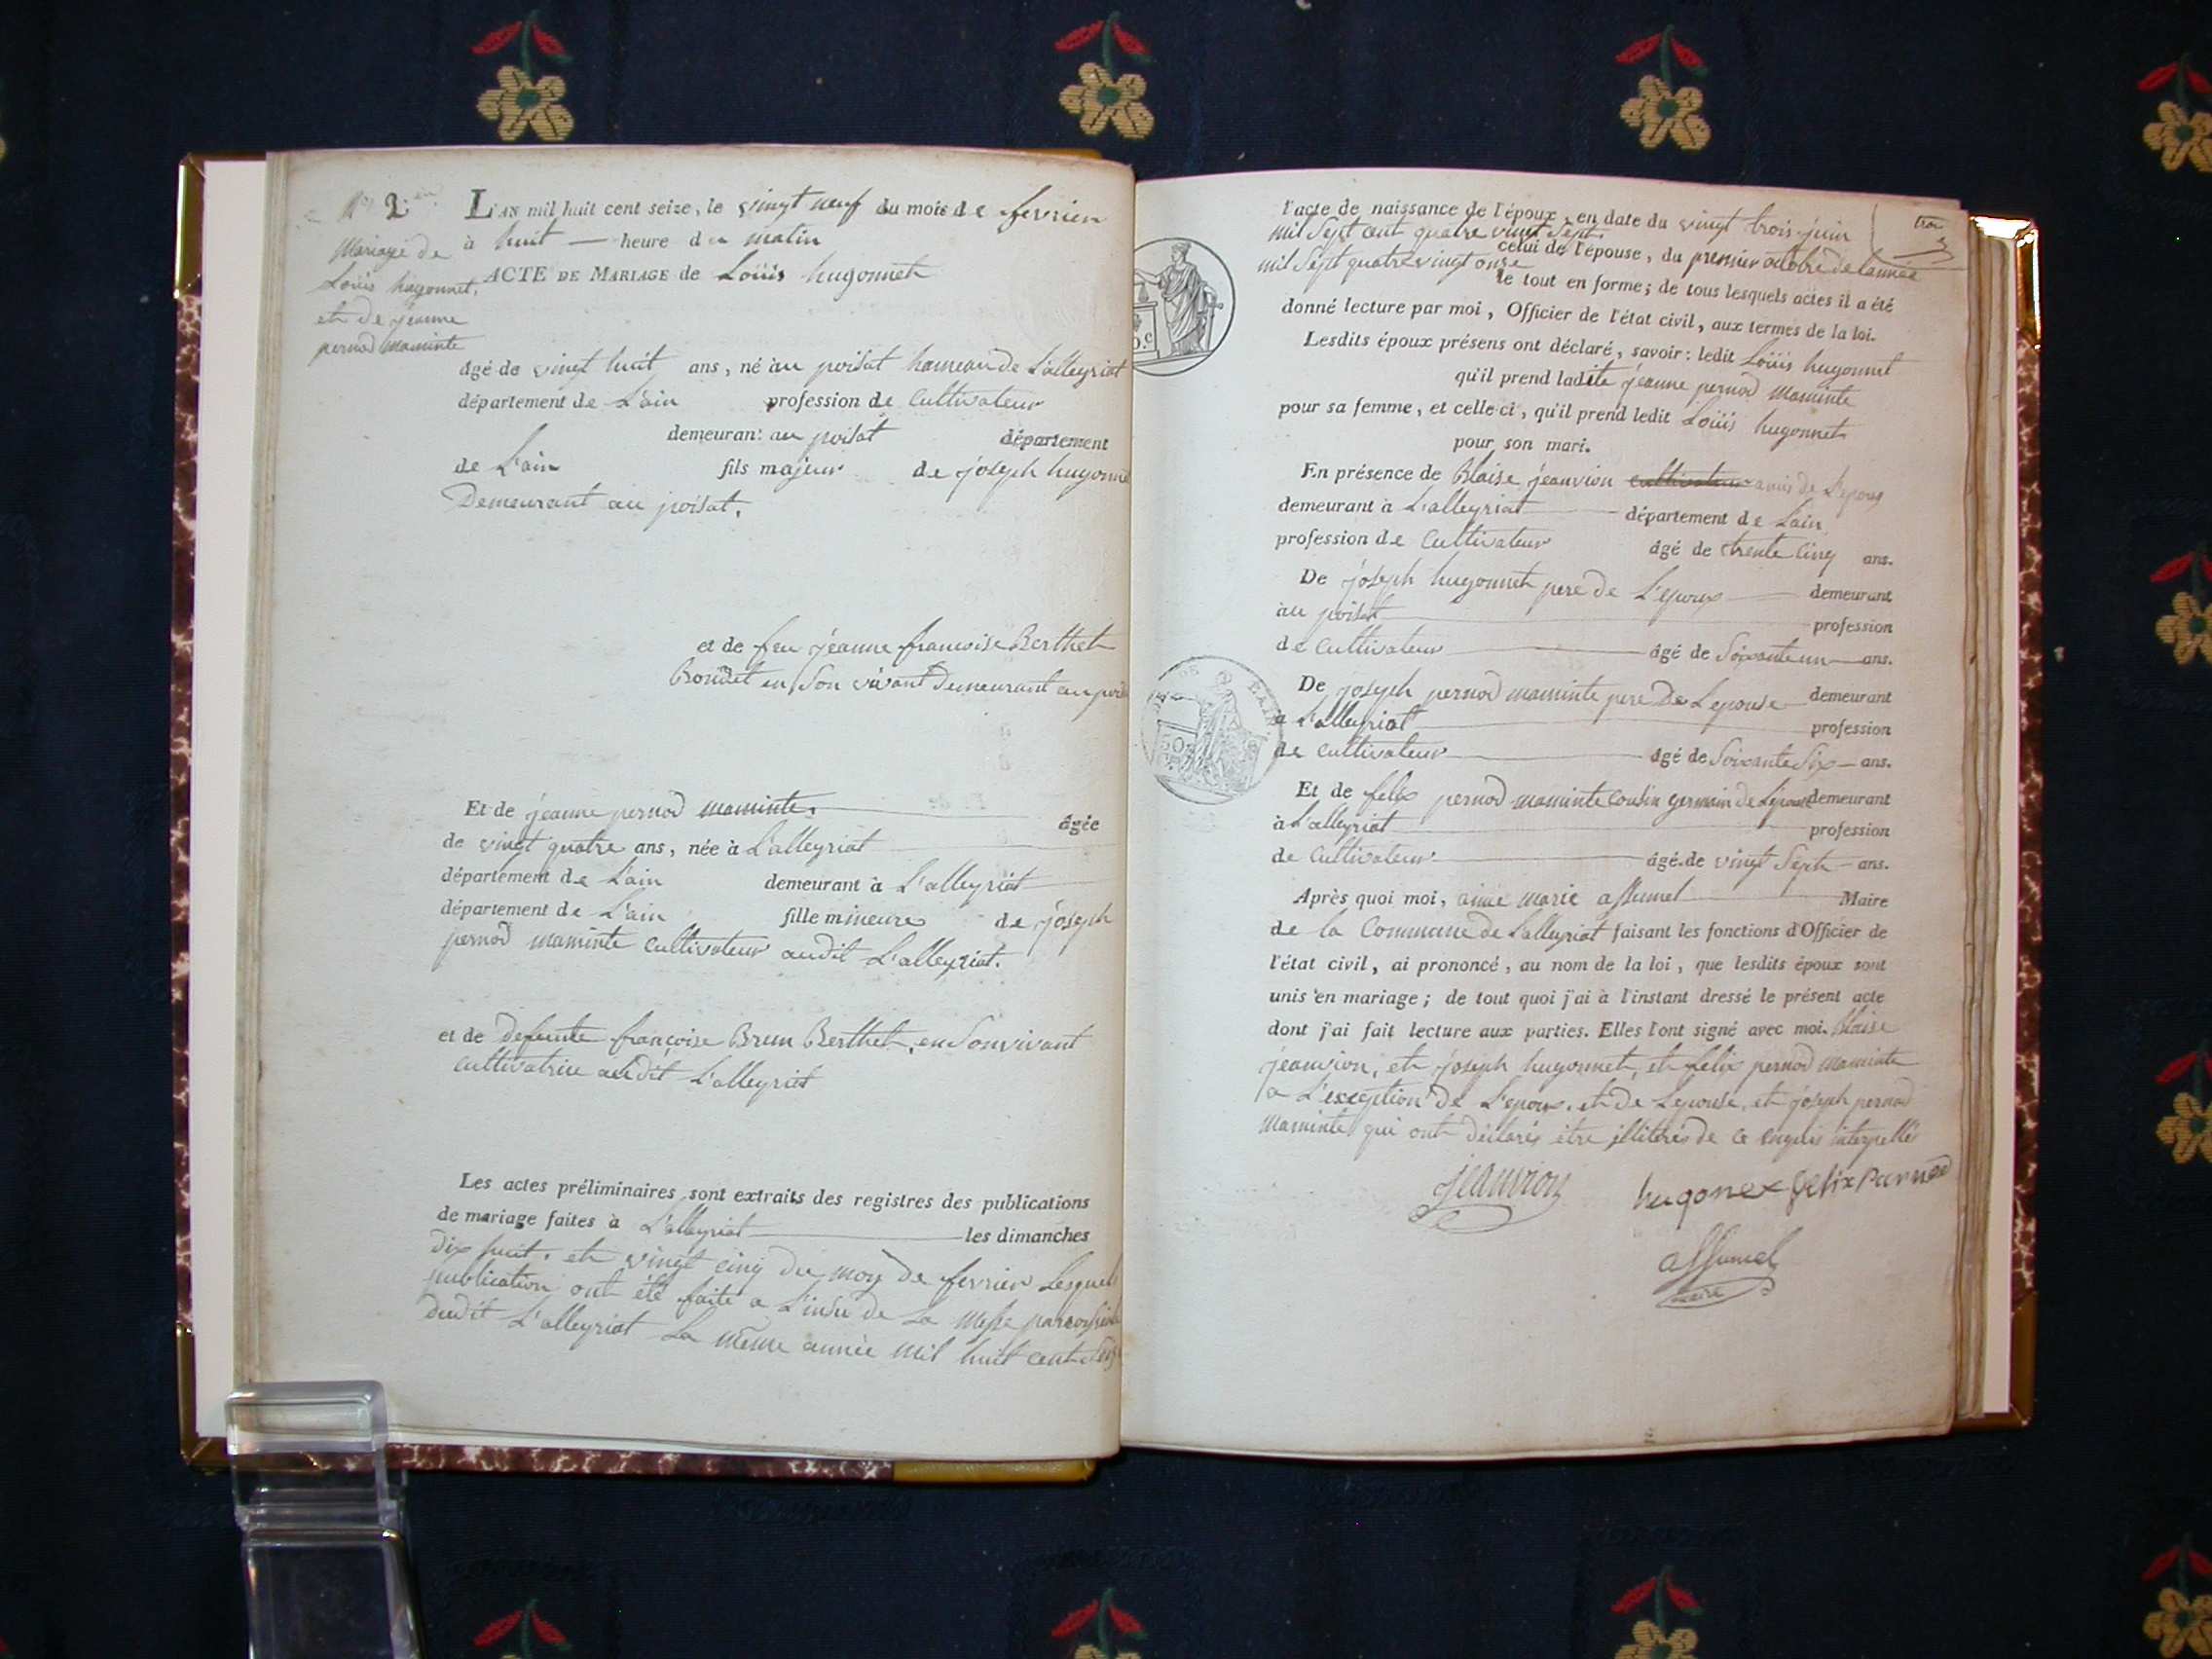 N° 2
Mariage de
Loüis hugonnet,
et de jeanne
pernod maminte
L'AN mil huit cent seize, le vingt neuf du mois de fevrier
à huit — heure du matin
ACTE DE MARIAGE de Loüis hugonnet
âgé de vingt huit ans, né au poisat hameau de L'alleyriat
département de L'ain profession de Cultivateur
demeurant au poisat département
de L'ain fils majeur de joseph hugonne
Demeurant au poisat.
et de feu jeanne francoise Berthet
Bondet en Son vivant Demeurant au
Et de jeanne pernod maminte. âgée
de vingt quatre ans, née à L'alleyriat
département de L'ain demeurant à L'alleyriat
département de L'ain fille mineure de joseph
pernod maminte cultivateur audit L'alleyriat.
et de defunte françoise Brun Berthet, en Son vivant
cultivatrice audit L'alleyriat
Les actes préliminaires sont extraits des registres des publications
de mariage faites à L'alleyriat les dimanches
dix huit. et vingt cinq du moy de fevrier Lesquel
publication ont été faite a L'insu de La messe paroissial
dudit L'alleyriat La même année mil huit cent Seiz
l'acte de naissance de l'époux, en date du vingt trois juin
mil Sept cent quatre vingt Sept.
celui de l'épouse, du premier octobre de L'année
mil Sept quatre vingt onze
le tout en forme; de tous lesquels actes il a été
donné lecture par moi, Officier de l'état civil, aux termes de la loi.
Lesdits époux présens ont déclaré, savoir: ledit Loüis hugonnet
qu'il prend ladite jeanne pernod maminte
pour sa femme, et celle-ci, qu'il prend ledit Loüis hugonnet
pour son mari.
En présence de Blaise jeanvion cultivateur amis de L'epoux
demeurant à L'alleyriat département de L'ain
profession de Cultivateur âgé de trente cinq ans.
De joseph hugonnet pere de L'epoux demeurant
au poisat profession
de Cultivateur âgé de Soixante un ans.
De joseph pernod maminte pere De Lepouse demeurant
a L'alleyriat profession
de cultivateur âgé de Soixante Six ans.
Et de felix pernod maminte cousin germain de Lepouse demeurant
à L'alleyriat profession
de Cultivateur âgé de vingt Sept ans.
Après quoi moi, aimé marie assumel Maire
de la Commune de L'alleyriat faisant les fonctions d'Officier de
l'état civil, ai prononcé, au nom de la loi, que lesdits époux sont
unis en mariage; de tout quoi j'ai à l'instant dressé le présent acte
dont j'ai fait lecture aux parties. Elles l'ont signé avec moi. Blaise
jeanvion, et joseph hugonnet, et felix pernod maminte
a L'exception de L'epoux. et de Lepouse, et joseph pernod
maminte qui ont déclarés être illiterés de ce enquis interpellés
jeanvion
hugonex felix Parnod
assumel
maire